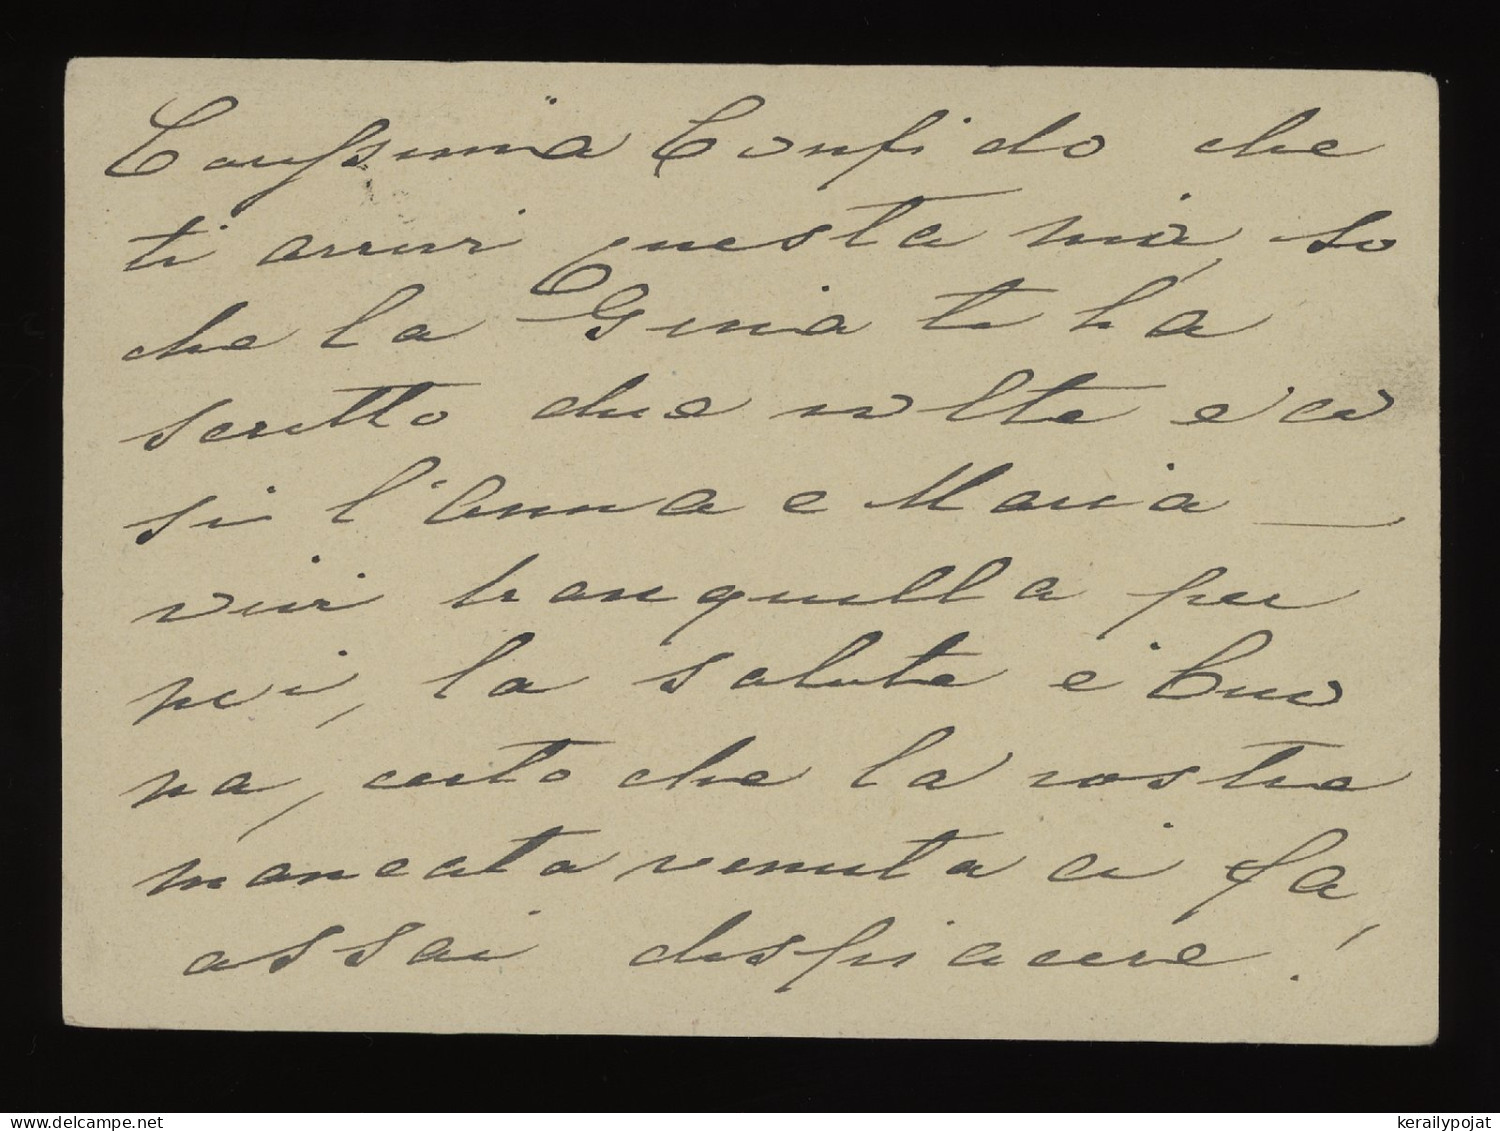 Carissima Confido che
ti arrivi questa mia, so
che la Gina ti há
scritto due volte e co
si l'Anna e Maria —
vivi tranquilla per
noi, la salute é buo
na, certo che la vostra
mancata venuta ci fa
assai dispiacere!
kerailypojat